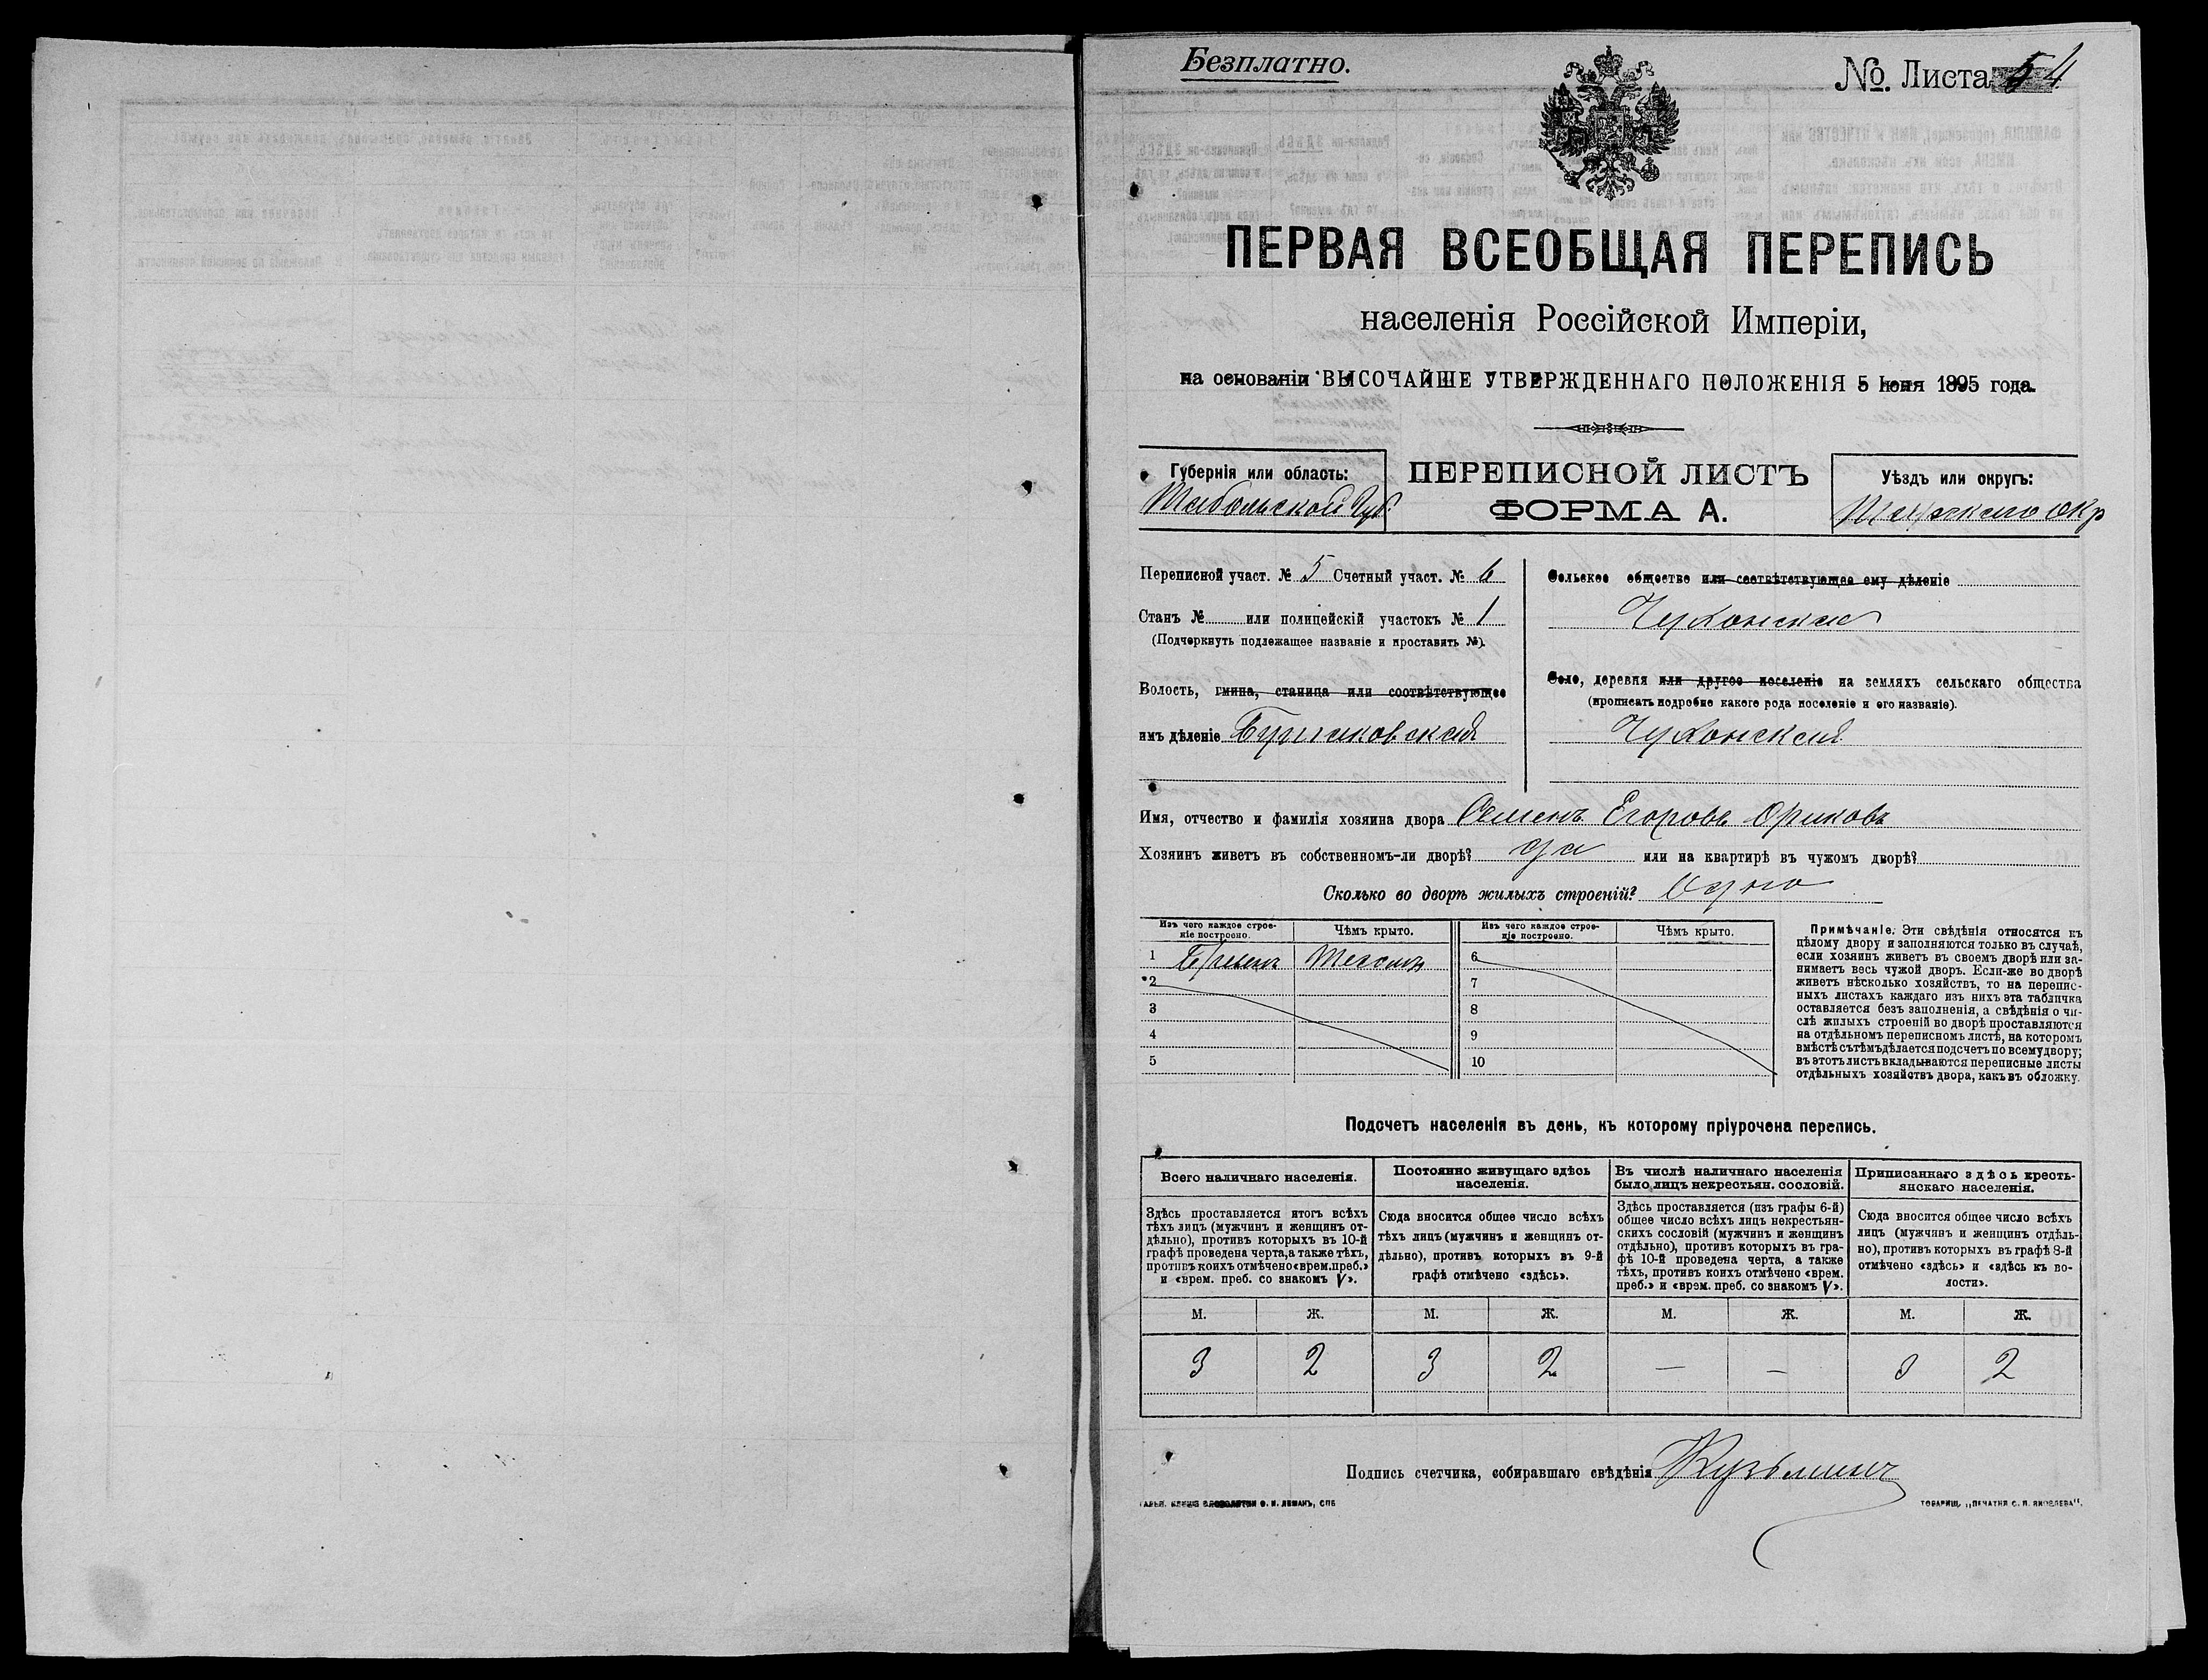 Безплатно.
№. Листа 54
ПЕРВАЯ ВСЕОБЩАЯ ПЕРЕПИСЬ
населенія Россійской Имперіи,
на основаніи ВЫСОЧАЙШЕ УТВЕРЖДЕННАГО ПОЛОЖЕНІЯ 5 Іюня 1895 года.
Губернія или область:
Тобольской Губ.
ПЕРЕПИСНОЙ ЛИСТЪ
ФОРМА А.
Уѣздъ или округъ:
Тарскаго окр
Переписной участ. № 5 Счетный участ. № 6
Станъ № или полицейскій участокъ № 1
(Подчеркнуть подлежащее названіе и проставить №).
Волость, гмина, станица или соотвѣтствующее
имъ дѣленіе
Сельское общество или соотвѣтствующее ему дѣленіе
Село, деревня или другое поселеніе на земляхъ сельскаго общества
(прописать подробно какого рода поселеніе и его названіе).
Имя, отчество и фамилія хозяина двора Семенъ Егоровъ
Хозяинъ живетъ въ собственномъ-ли дворѣ? да или на квартирѣ въ чужомъ дворѣ?
Сколько во дворѣ жилыхъ строеній? Одно
Изъ чего каждое строе-
ніе построено.
Чѣмъ крыто.
Изъ чего каждое строе-
ніе построено.
Чѣмъ крыто.
1 Бревенъ Тесомъ
2
3
4
5
6
7
8
9
10
Примѣчаніе. Эти свѣдѣнія относятся къ
цѣлому двору и заполняются только въ случаѣ,
если хозяинъ живетъ въ своемъ дворѣ или за-
нимаетъ весь чужой дворъ. Если-же во дворѣ
живетъ нѣсколько хозяйствъ, то на перепис-
ныхъ листахъ каждаго изъ нихъ эта табличка
оставляется безъ заполненія, а свѣдѣнія о чи-
слѣ жилыхъ строеній во дворѣ проставляются
на отдѣльномъ переписномъ листѣ, на которомъ
вмѣстѣ съ тѣмъ дѣлается подсчетъ по всему двору;
въ этотъ листъ вкладываются переписные листы
отдѣльныхъ хозяйствъ двора, какъ въ обложку.
Подсчетъ населенія въ день, къ которому пріурочена перепись.
Всего наличнаго населенія.
Здѣсь проставляется итогъ всѣхъ
тѣхъ лицъ (мужчинъ и женщинъ от-
дѣльно), противъ которыхъ въ 10-й
графѣ проведена черта, а также тѣхъ,
противъ коихъ отмѣчено «врем. преб.»
и «врем. преб. со знакомъ V».
Постоянно живущаго здѣсь
населенія.
Сюда вносится общее число всѣхъ
тѣхъ лицъ (мужчинъ и женщинъ от-
дѣльно), противъ которыхъ въ 9-й
графѣ отмѣчено «здѣсь».
Въ числѣ наличнаго населенія
было лицъ некрестьян. сословій.
Здѣсь проставляется (изъ графы 6-й)
общее число всѣхъ лицъ некрестьян-
скихъ сословій (мужчинъ и женщинъ
отдѣльно), противъ которыхъ въ гра-
фѣ 10-й проведена черта, а также
тѣхъ, противъ коихъ отмѣчено «врем.
преб.» и «врем. преб. со знакомъ V».
Приписаннаго здѣсь кресть-
янскаго населенія.
Сюда вносится общее число всѣхъ
лицъ (мужчинъ и женщинъ отдѣль-
но), противъ которыхъ въ графѣ 8-й
отмѣчено «здѣсь» и «здѣсь къ во-
лости».
М. Ж. М. Ж. М. Ж. М. Ж.
3 2 3 2 — — 3 2
Подпись счетчика, собиравшаго свѣдѣнія Кузьминъ
ТОВАРИЩ. „ПЕЧАТНЯ С. П. ЯКОВЛЕВА".